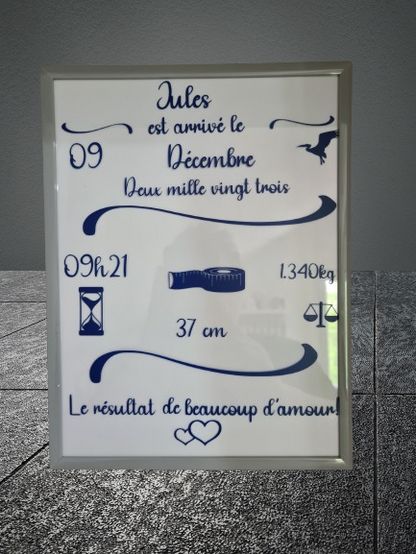 Jules
est arrivé le
09 Décembre
Deux mille vingt trois
09h21
1.340kg
37 cm
Le résultat de beaucoup d'amour!